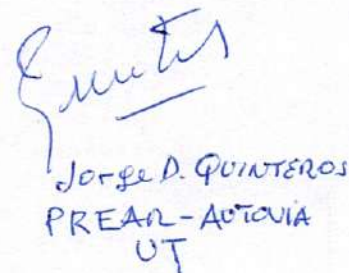 Jorge D. QUINTEROS
PREAR-AUTOVIA
UT